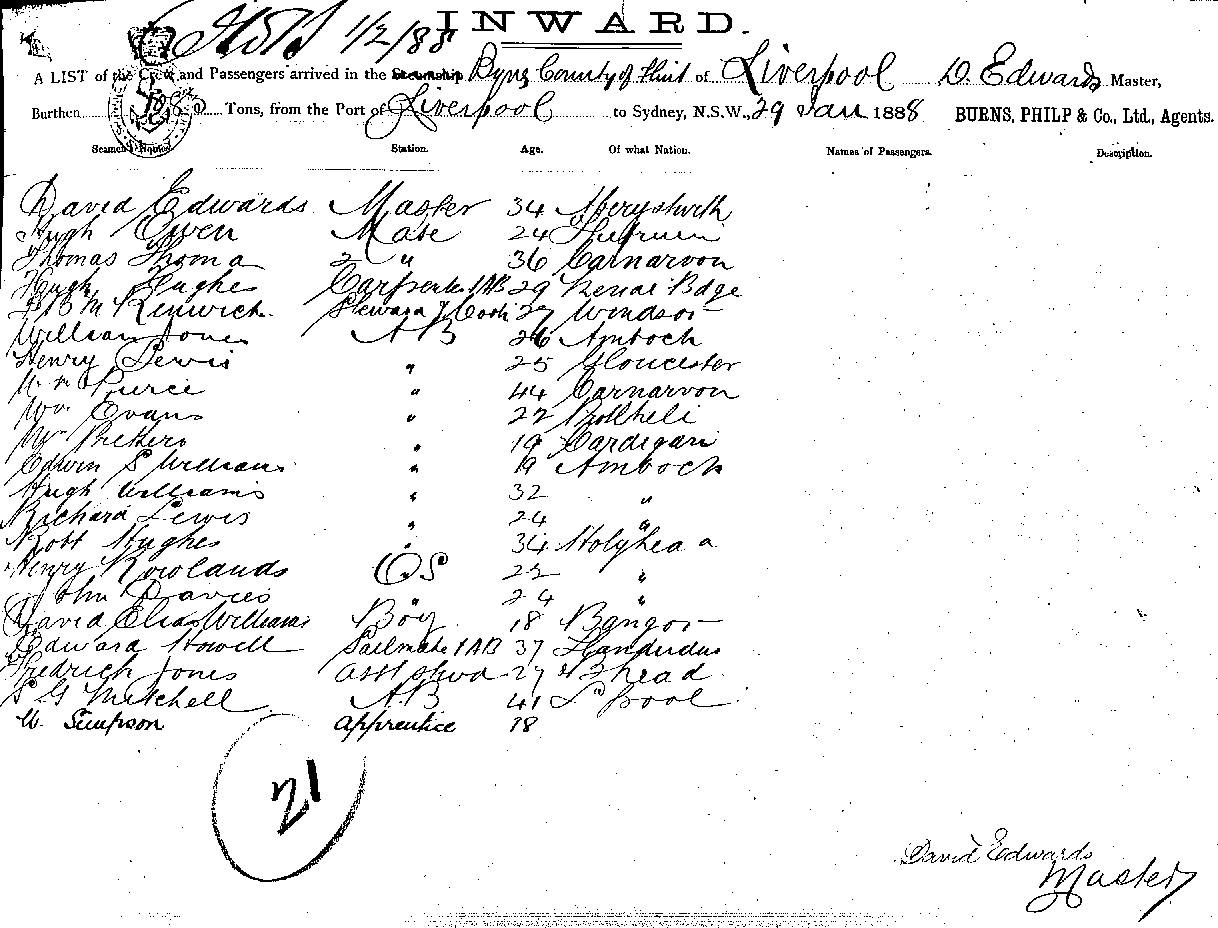 1/2/88
INWARD.
A LIST of the Crew and Passengers arrived in the Steamship County of Flint of Liverpool D. Edwards Master,
Burthen Tons, from the Port of Liverpool to Sydney, N.S.W., 29 Jan 1888 BURNS, PHILP & Co., Ltd., Agents.
Seamen's Names. Station. Age. Of what Nation. Names of Passengers. Description.
David Edwards Master 34 Aberystwith
Hugh Owen Mate 24
Thomas Thoma 2 " 36 Carnarvon
Hugh Hughes Carpenter & AB 29 Menai Bdge
Renwick Steward & Cook 27 Windsor
William Jones AB 26 Amloch
Henry Lewis " 25 Gloucester
Wm Pierce " 44 Carnarvon
Wm Evans " 22 Pwllheli
Wm " 19 Cardigan
Edwin S Williams " 19 Amloch
Hugh Williams " 32 "
Richard Lewis " 24 "
Robt Hughes " 34 Holyhead
Henry Rowlands OS 22 "
John Davies " 24 "
David Elias Williams Boy 18 Bangor
Edward Howell Sailmaker & AB 37 Llandudno
Fredrich Jones Asst Stwd 27 B head
S G Mitchell A.B 41 L pool
W. Simpson Apprentice 18
21
David Edwards
Master